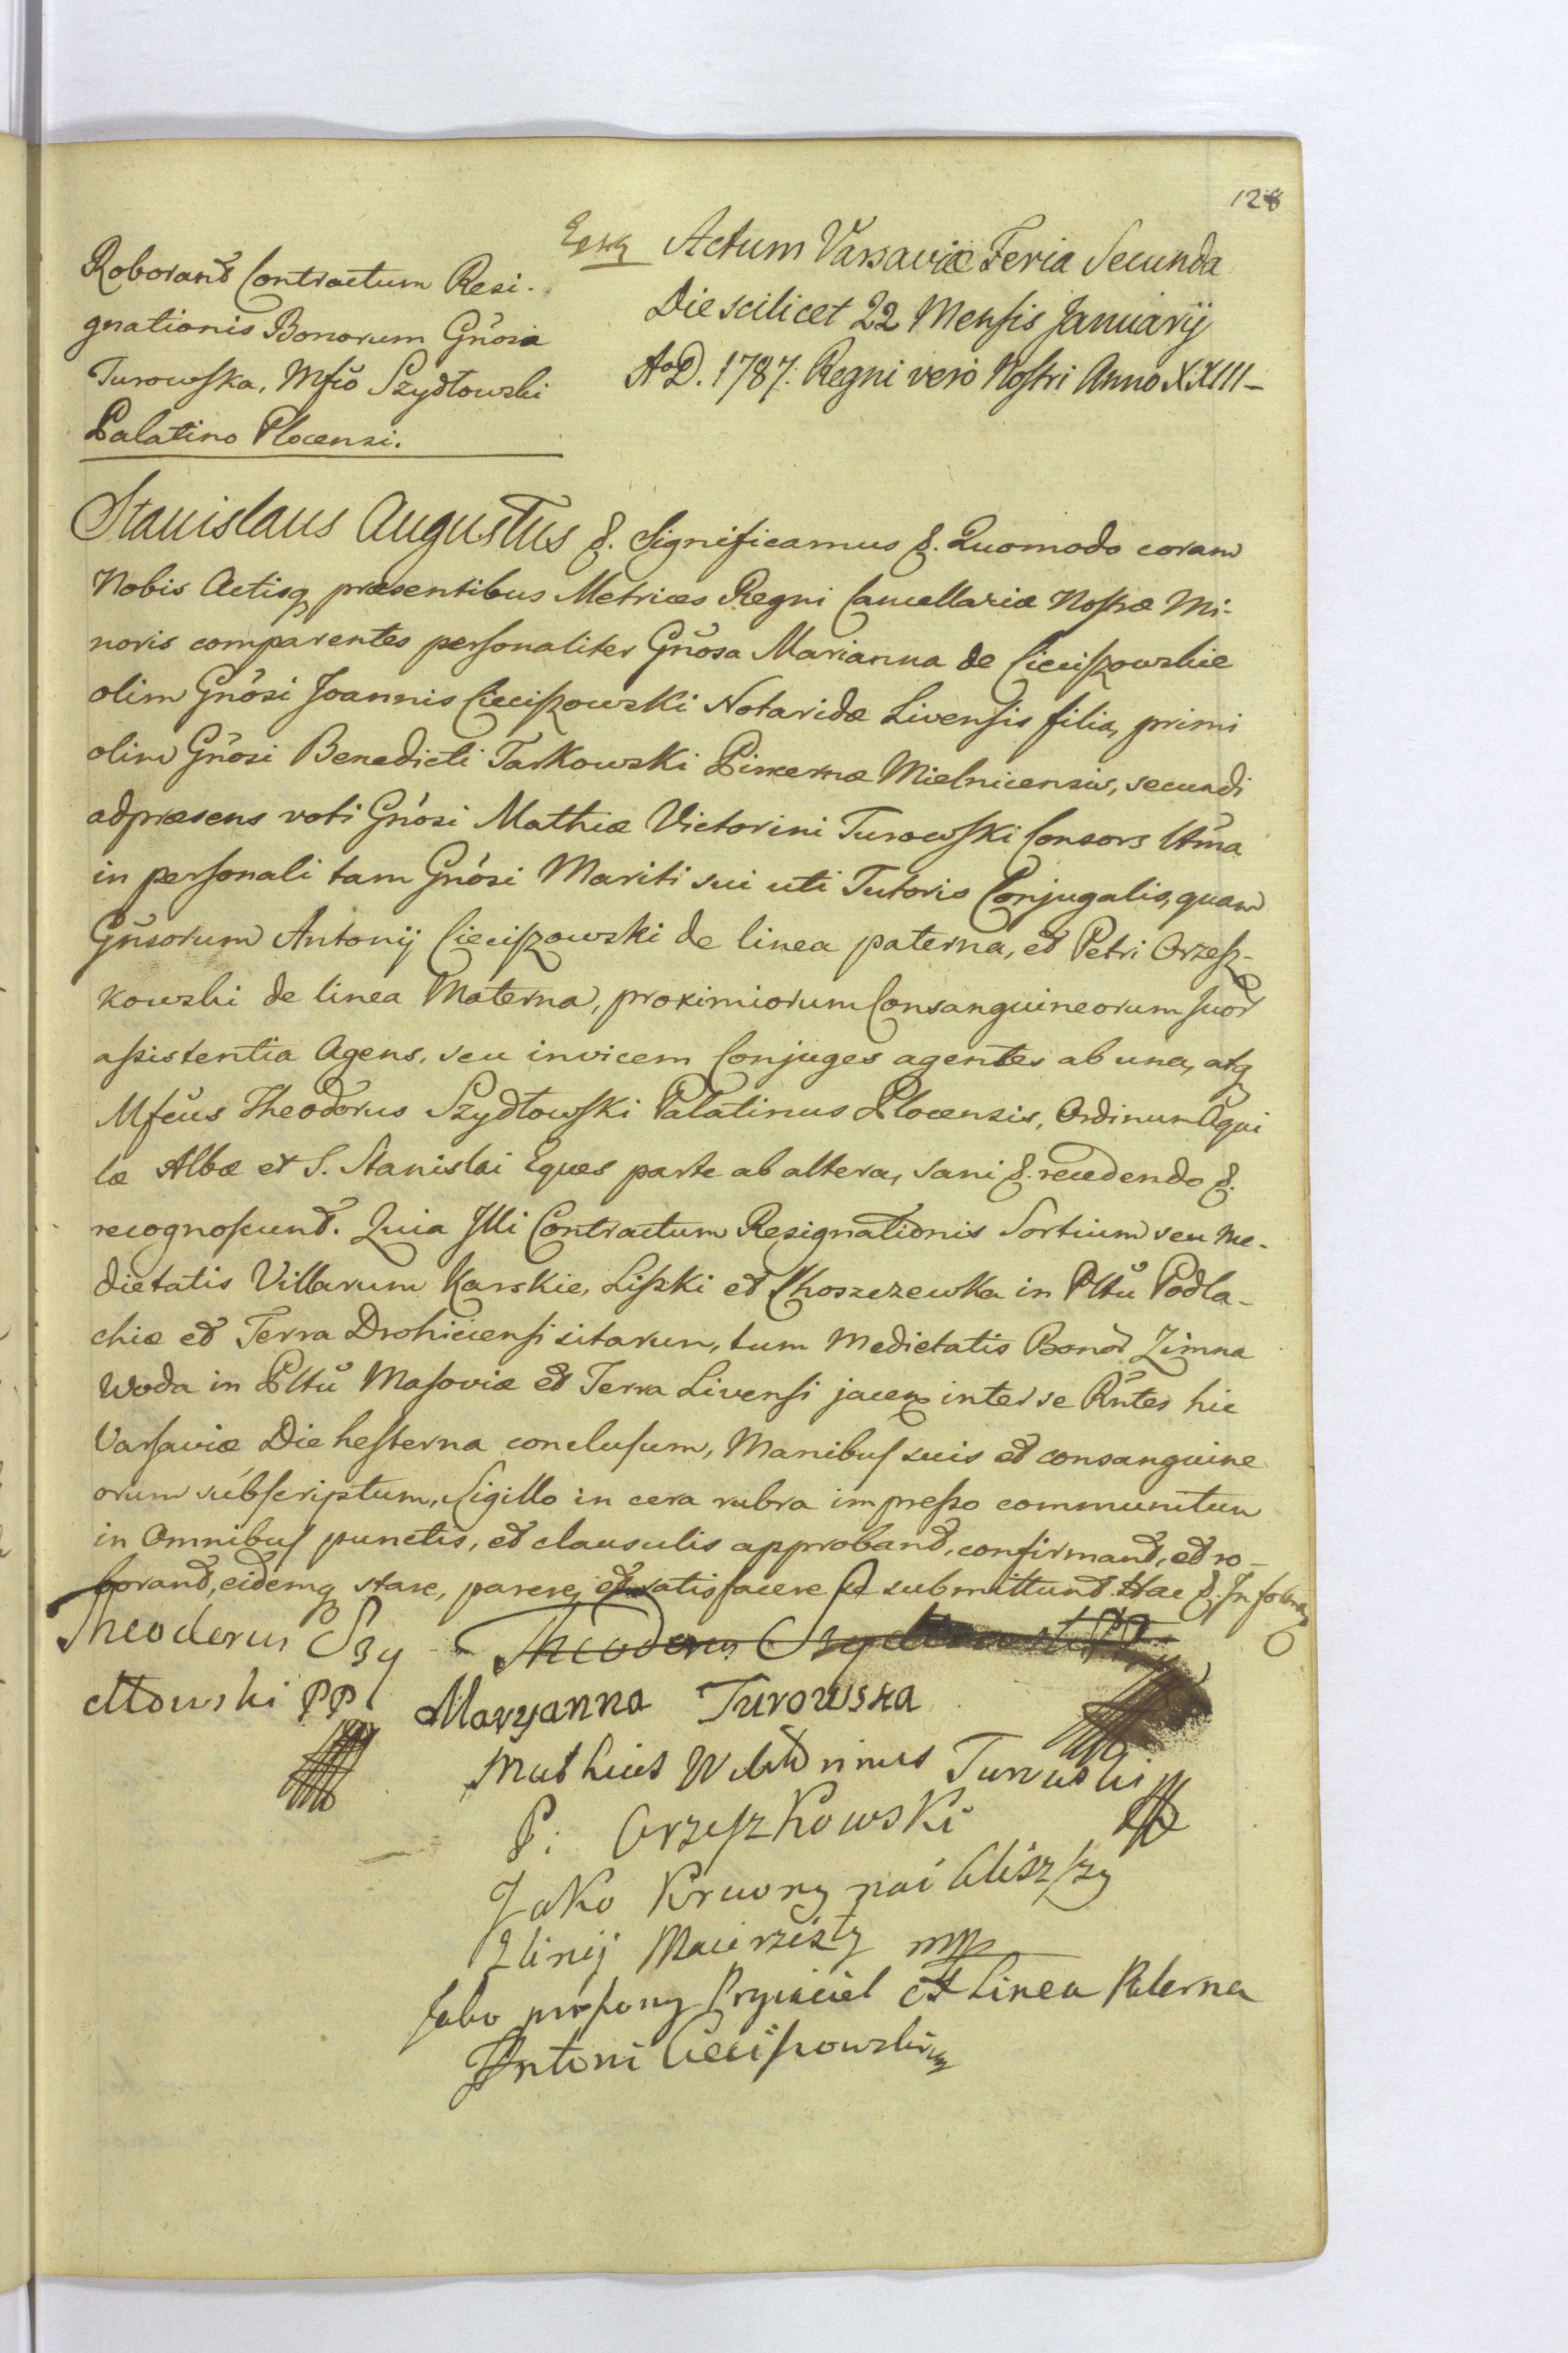 128
Roborant Contractum Resi-
gnationis Bonorum Gnosa
Turowska, Mfco Szydłowski
Palatino Plocensi.
Actum Varsaviæ Feria Secunda
Die scilicet 22 Mensis Januarij
AoD. 1787. Regni vero Nostri Anno XXIII-
Stanislaus Augustus &. Significamus &. Quomodo coram
Nobis Actisq præsentibus Metrices Regni Cancellariæ Nostræ Mi-
noris comparentes personaliter Gnosa Marianna de Cieciszowskie
olim Gnosi Joannis Cieciszowski Notaridæ Livensis filia, primi
olim Gnosi Benedicti Tarkowski Pincernæ Mielnicensis, secundi
adpræsens voti Gnosi Mathiæ Victorini Turowski Consors Ltma
in personali tam Gnosi Mariti sui uti Tutoris Conjugalis, quam
Gnsorum Antonij Cieciszowski de linea paterna, et Petri Orzesz-
kowski de linea Materna, proximiorum Consanguineorum suor
assistentia Agens, seu invicem Conjuges agentes ab una, atq
Mfcus Theodorus Szydłowski Palatinus Plocensis, Ordinum Aqui
læ Albæ et S. Stanislai Eques parte ab altera, sani &. recedendo &.
recognoscunt. Quia Illi Contractum Resignationis Sortium seu Me-
dietatis Villarum Karskie, Liszki et Choszczewka in Pltu Podla-
chiæ et Terra Drohiciensi sitarum, tum Medietatis Bonor Zimna
Woda in Pltu Masoviæ et Terra Livensi jacen inter se Rntes hic
Varsaviæ Die hesterna conclusum, Manibus suis et consanguine
orum subscriptum, Sigillo in cera rubra impresso communitum
in Omnibus punctis, et clausulis approband, confirmand, et ro-
borand, eidemq stare, parere, et satisfacere se submittunt. Hac &. In
Theodorus Szy- Theodorus Szydłowski PP
dłowski PP Maryanna Turowska
Mathias Wiktorinus Turowski
P: Orzeszkowski
Jako Krewny nai bliszszy
Z linij Macirzisty mp
Jako proszony Pryiaciel et Linea Paterna
Antoni Cieciszowski mp